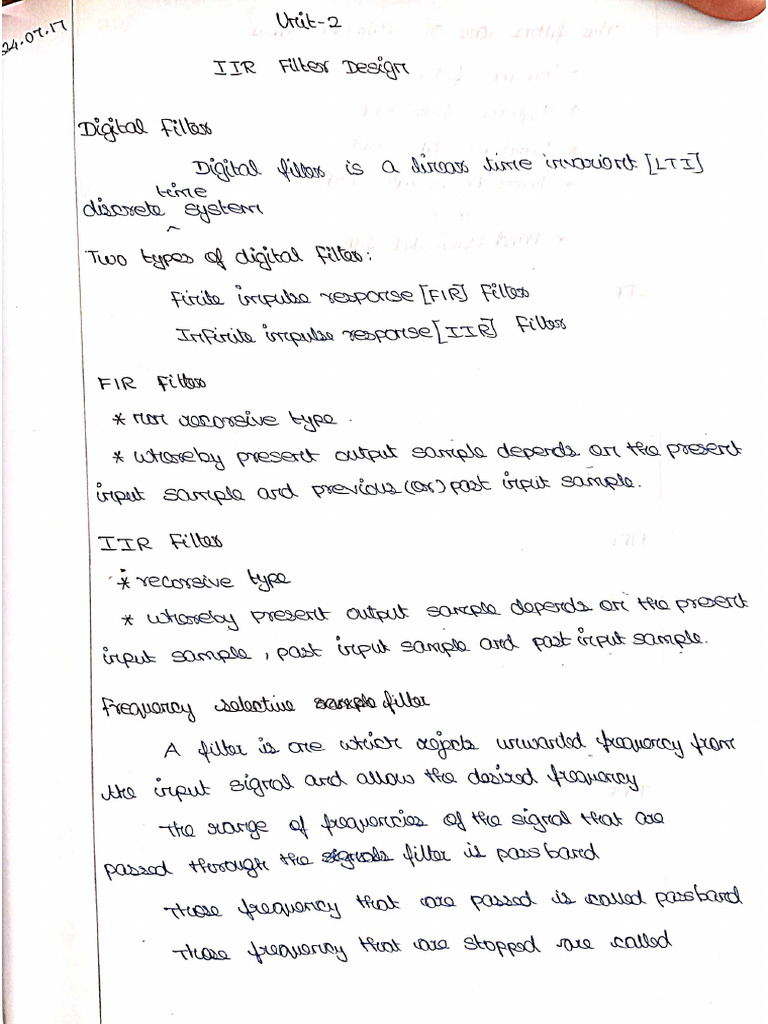 24.07.17
Unit-2
IIR Filter Design
Digital Filter
Digital filter is a linear time invariant [LTI]
time
discrete ^ system
Two types of digital filter:
Finite impulse response [FIR] Filter
Infinite impulse response [IIR] Filter
FIR Filter
* non recorsive type.
* whereby present output sample depends on the present
input sample and previous (or) past input sample.
IIR Filter
* recorsive type
* whereby present output sample depends on the present
input sample, past input sample and past input sample.
Frequency selective sample filter
A filter is one which rejects unwanded frequency from
the input signal and allow the desired frequency
The range of frequencies of the signal that are
passed through the signals filter is passband
Those frequency that are passed is called passband
Those frequency that are stopped are called